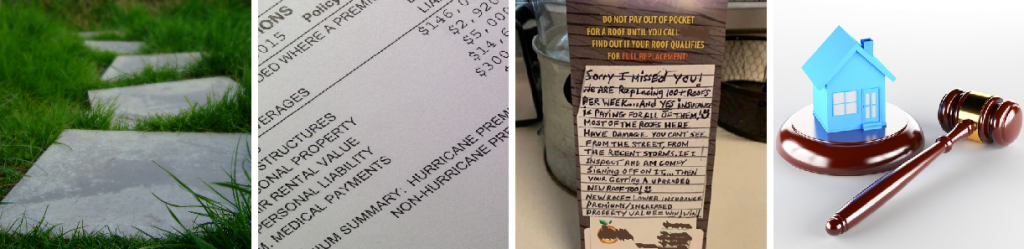 ONS
Policy
2015
LIA
DED WHERE A PREMI
$146,
$2,920
$5,0
$14,6
$300
ERAGES
STRUCTURES
ONAL PROPERTY
RENTAL VALUE
PERSONAL LIABILITY
MEDICAL PAYMENTS
UM SUMMARY: HURRICANE PREM
NON-HURRICANE PRE
DO NOT PAY OUT OF POCKET
FOR A ROOF UNTIL YOU CALL.
FIND OUT IF YOUR ROOF QUALIFIES
FOR FULL REPLACEMENT!
Sorry I missed You!
WE ARE REPlAcING 100+ ROOFS
PER WEEK...AND YES INSURANCE
IS PAYING FOR ALL OF THEM,
MOST OF THE ROOFS HERE
HAVE DAMAGE YOU CANT SEE
FROM THE STREET, FROM
THE RECENT STORMS. IF I
INSPECT AND AM COMFY
SIGNING OFF ON IT...THEN
YOUR GETTING A UPGRADED
NEW ROOF TOO!
NEW ROOF = LOWER INSURANCE
PREMIUMS/INCREASED
PROPERTY VALUE = WIN/WIN!